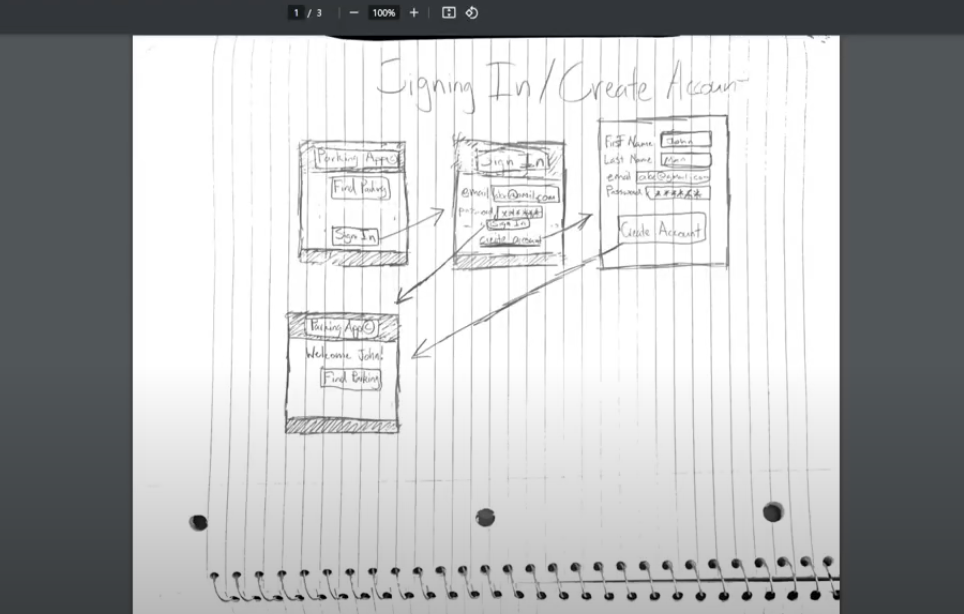 1 / 3
100%
Signing In / Create Account
Parking App©
Find Parking
Sign In
Sign In
email
password ******
Sign In
Create Account
First Name John
Last Name
email abc@gmail.com
Password ******
Create Account
Parking App©
Welcome John!
Find Parking